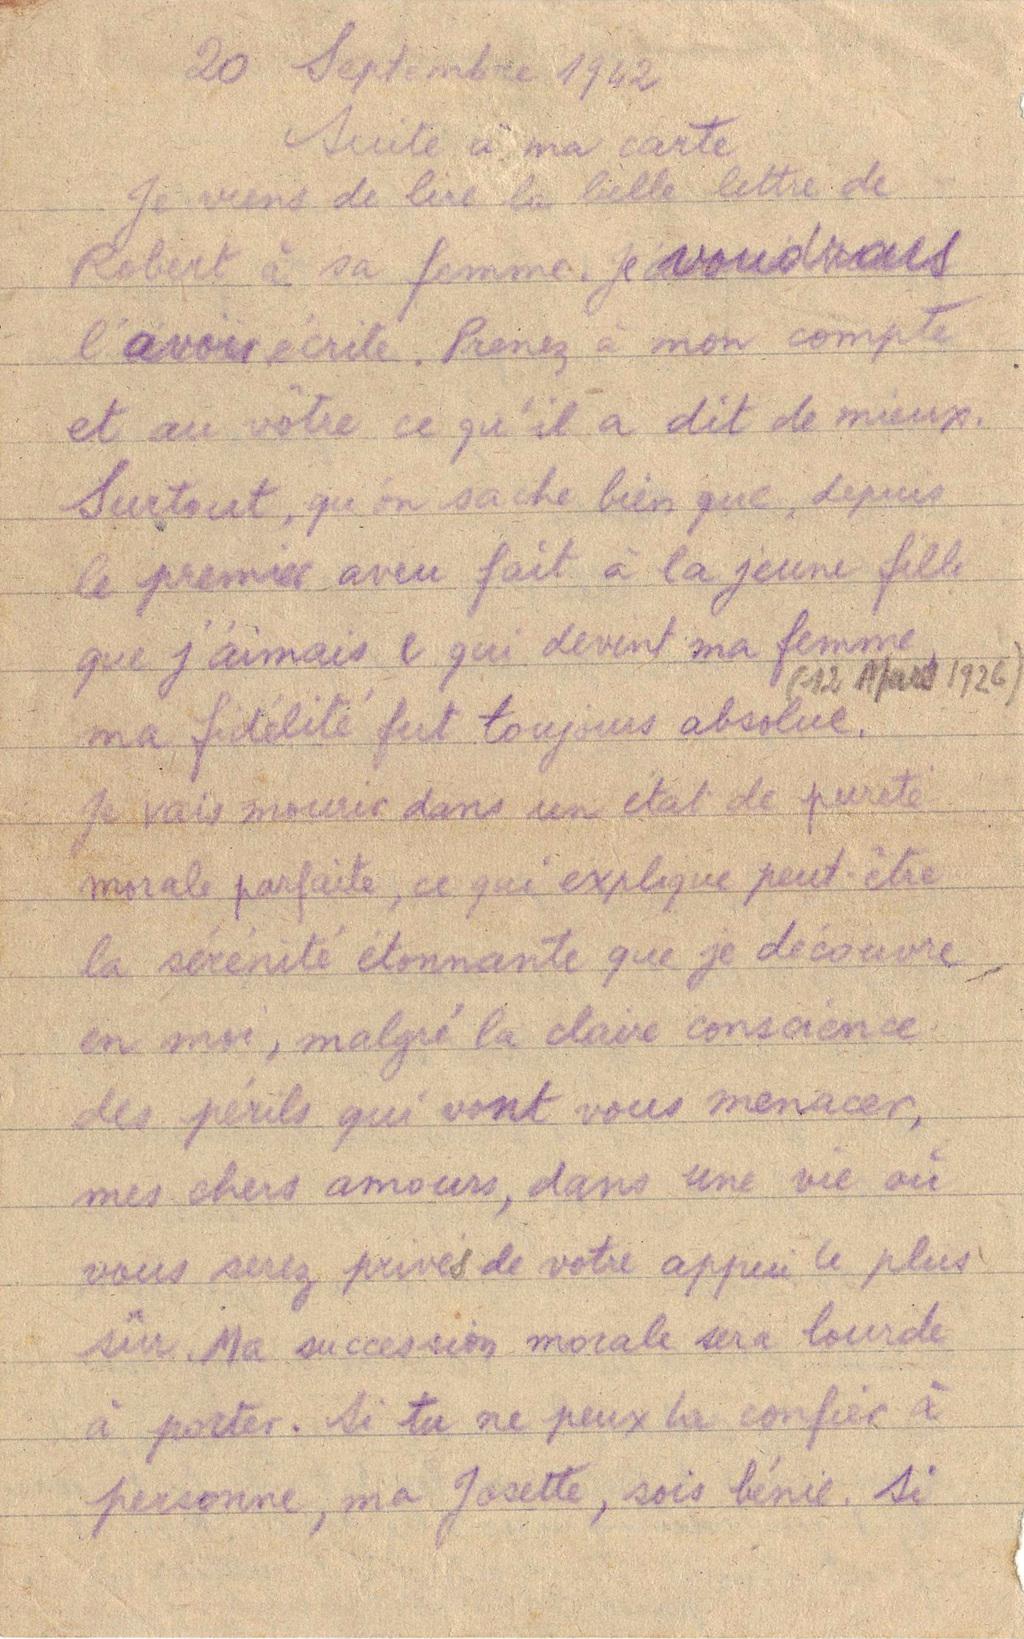 20 Septembre 1942
Suite à ma carte
Je viens de lire la belle lettre de
Robert à sa femme. Je voudrais
l'avoir écrite. Prenez à mon compte
et au vôtre ce qu'il a dit de mieux.
Surtout, qu'on sache bien que, depuis
le premier aveu fait à la jeune fille
que j'aimais & qui devint ma femme,
(12 Mars 1926)
ma fidélité fut toujours absolue.
Je vais mourir dans un état de pureté
morale parfaite, ce qui explique peut-être
la sérénité étonnante que je découvre
en moi, malgré la claire conscience
des périls qui vont vous menacer,
mes chers amours, dans une vie où
vous serez privés de votre appui le plus
sûr. Ma succession morale sera lourde
à porter. Si tu ne peux la confier à
personne, ma Josette, sois bénie. Si